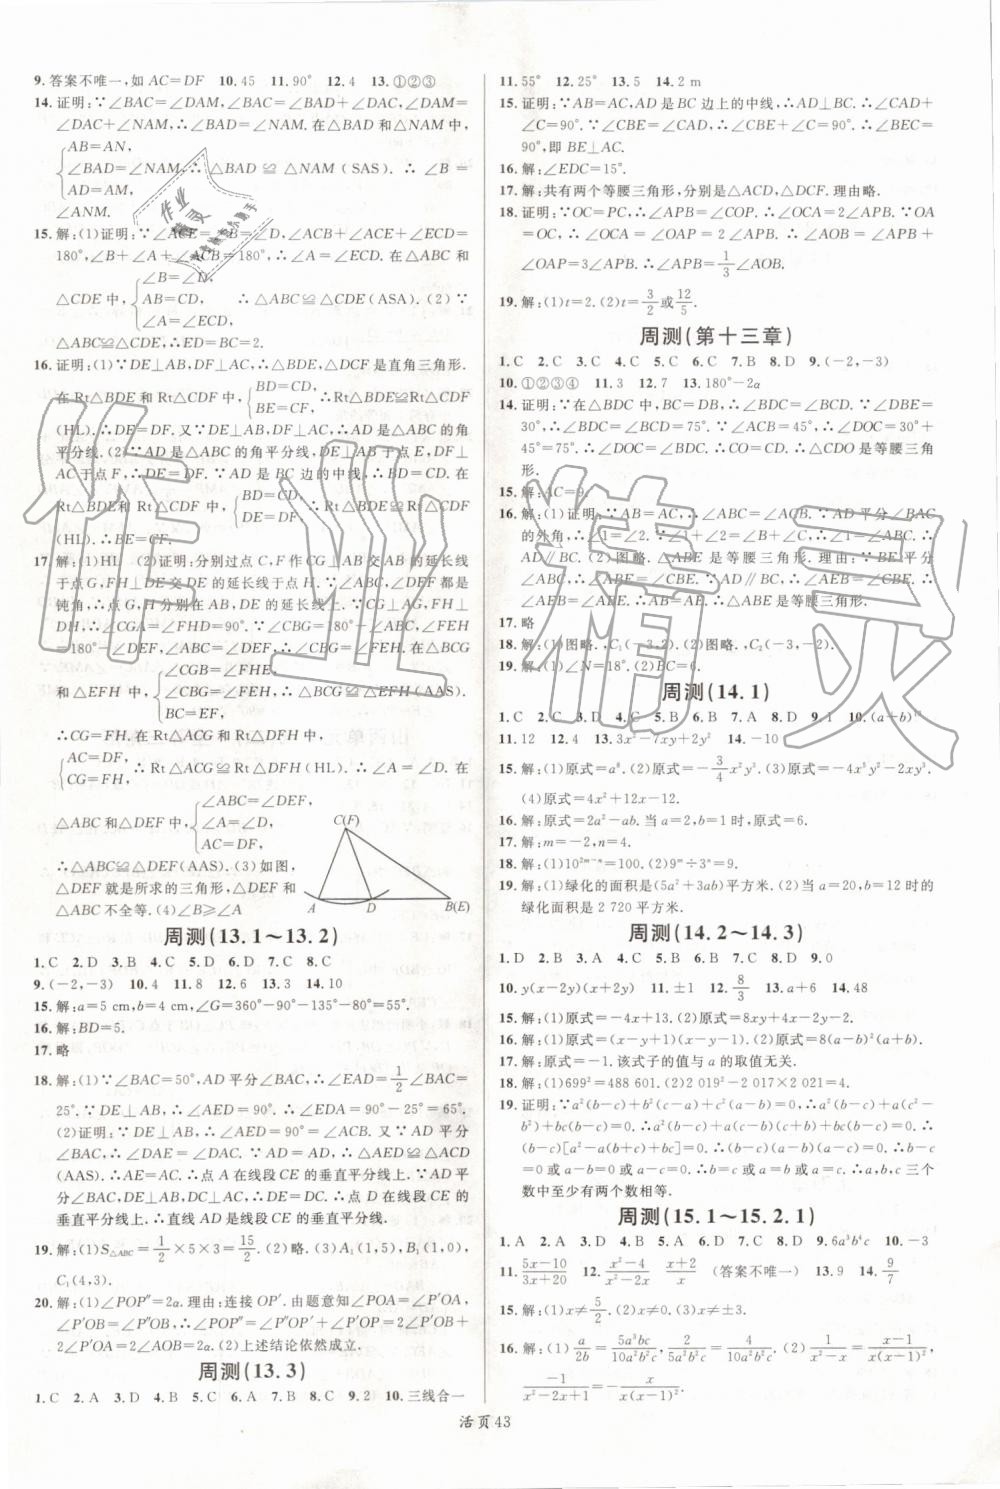 9.答案不唯一,如 AC=DF 10.45 11.90° 12.4 13.①②③
14.证明:∵∠BAC=∠DAM,∠BAC=∠BAD+∠DAC,∠DAM=
∠DAC+∠NAM,∴∠BAD=∠NAM.在△BAD和△NAM中,
AB=AN,
∠BAD=∠NAM,∴△BAD≌△NAM(SAS).∴∠B=
AD=AM,
∠ANM.
15.解:(1)证明:∵∠ACE=∠B=∠D,∠ACB+∠ACE+∠ECD=
180°,∠B+∠A+∠ACB=180°,∴∠A=∠ECD.在△ABC和
∠B=∠D,
△CDE中, AB=CD, ∴△ABC≌△CDE(ASA).(2)∵
∠A=∠ECD,
△ABC≌△CDE,∴ED=BC=2.
16.证明:(1)∵DE⊥AB,DF⊥AC,∴△BDE,△DCF是直角三角形.
BD=CD,
在Rt△BDE和Rt△CDF中, ∴Rt△BDE≌Rt△CDF
BE=CF,
(HL).∴DE=DF.又∵DE⊥AB,DF⊥AC,∴AD是△ABC的角
平分线.(2)∵AD是△ABC的角平分线,DE⊥AB于点E,DF⊥
AC于点F,∴DE=DF.∵AD是BC边的中线,∴BD=CD.在
BD=CD,
Rt△BDE和Rt△CDF中, ∴Rt△BDE≌Rt△CDF
DE=DF.
(HL).∴BE=CF.
17.解:(1)HL (2)证明:分别过点C,F作CG⊥AB交AB的延长线
于点G,FH⊥DE交DE的延长线于点H,∵∠ABC,∠DEF都是
钝角,∴点G,H分别在AB,DE的延长线上.∵CG⊥AG,FH⊥
DH,∴∠CGA=∠FHD=90°.∵∠CBG=180°-∠ABC,∠FEH
=180°-∠DEF,∠ABC=∠DEF,∴∠CBG=∠FEH.在△BCG
∠CGB=∠FHE,
和△EFH中, ∠CBG=∠FEH,∴△BCG≌△EFH(AAS).
BC=EF,
∴CG=FH.在Rt△ACG和Rt△DFH中,
AC=DF,
∴Rt△ACG≌Rt△DFH(HL).∴∠A=∠D.在
CG=FH,
∠ABC=∠DEF,
△ABC和△DEF中, ∠A=∠D,
AC=DF,
∴△ABC≌△DEF(AAS).(3)如图,
△DEF就是所求的三角形,△DEF和
△ABC不全等.(4)∠B≥∠A
C(F)
A D B(E)
周测(13.1~13.2)
1.C 2.D 3.B 4.C 5.D 6.D 7.C 8.C
9.(-2,-3) 10.4 11.8 12.6 13.3 14.10
15.解:a=5 cm,b=4 cm,∠G=360°-90°-135°-80°=55°.
16.解:BD=5.
17.略
18.解:(1)∵∠BAC=50°,AD平分∠BAC,∴∠EAD=1/2∠BAC=
25°.∵DE⊥AB,∴∠AED=90°.∴∠EDA=90°-25°=65°.
(2)证明:∵DE⊥AB,∴∠AED=90°=∠ACB.又∵AD平分
∠BAC,∴∠DAE=∠DAC.又∵AD=AD,∴△AED≌△ACD
(AAS).∴AE=AC.∴点A在线段CE的垂直平分线上.∵AD平
分∠BAC,DE⊥AB,DC⊥AC,∴DE=DC.∴点D在线段CE的
垂直平分线上.∴直线AD是线段CE的垂直平分线.
19.解:(1)S△ABC=1/2×5×3=15/2.(2)略.(3)A₁(1,5),B₁(1,0),
C₁(4,3).
20.解:(1)∠POP″=2α.理由:连接OP′.由题意知∠POA=∠P′OA,
∠P′OB=∠P″OB,∴∠POP″=∠P″OP′+∠P′OP=2∠P′OB+
2∠P′OA=2∠AOB=2α.(2)上述结论依然成立.
周测(13.3)
1.C 2.A 3.D 4.B 5.C 6.A 7.B 8.C 9.2 10.三线合一
11.55° 12.25° 13.5 14.2 m
15.证明:∵AB=AC,AD是BC边上的中线,∴AD⊥BC.∴∠CAD+
∠C=90°.∵∠CBE=∠CAD,∴∠CBE+∠C=90°.∴∠BEC=
90°,即BE⊥AC.
16.解:∠EDC=15°.
17.解:共有两个等腰三角形,分别是△ACD,△DCF.理由略.
18.证明:∵OC=PC,∴∠APB=∠COP.∴∠OCA=2∠APB.∵OA
=OC,∴∠OCA=∠OAP=2∠APB.∴∠AOB=∠APB
+∠OAP=3∠APB.∴∠APB=1/3∠AOB.
19.解:(1)t=2.(2)t=3/2或12/5.
周测(第十三章)
1.C 2.C 3.C 4.C 5.C 6.C 7.B 8.D 9.(-2,-3)
10.①②③④ 11.3 12.7 13.180°-2α
14.证明:∵在△BDC中,BC=DB,∴∠BDC=∠BCD.∵∠DBE=
30°,∴∠BDC=∠BCD=75°.∵∠ACB=45°,∴∠DOC=30°+
45°=75°.∴∠DOC=∠BDC.∴CO=CD.∴△CDO是等腰三角
形.
15.解:AC=9.
16.解:(1)证明:∵AB=AC,∴∠ABC=∠ACB.∵AD平分∠BAC
的外角,∴∠1=∠2.∵∠ABC+∠ACB=∠1+∠2,∴∠1=∠ABC.∴
AD∥BC.(2)图略.△ABE是等腰三角形.理由:∵BE平分
∠ABC,∴∠ABE=∠CBE.∵AD∥BC,∴∠AEB=∠CBE.∴
∠ABE=∠AEB.∴AB=AE.∴△ABE是等腰三角形.
17.略
18.解:(1)图略.,C₁(-3,2).(2)图略.,C₂(-3,-2).
19.解:(1)∠N=18°.(2)BC=6.
周测(14.1)
1.C 2.C 3.D 4.C 5.B 6.B 7.A 8.D 9.1
11.12 12.4 13.3x²-7xy+2y² 14.-10
15.解:(1)原式=a⁸.(2)原式=-3/4x²y³.(3)原式=-4x³y²-2xy³.
(4)原式=4x²+12x-12.
16.解:原式=2a²-ab.当a=2,b=1时,原式=6.
17.解:m=-2,n=4.
18.解:(1)10²ᵐ⁻ⁿ=100.(2)9ᵐ÷3ⁿ=9.
19.解:(1)绿化的面积是(5a²+3ab)平方米.(2)当a=20,b=12时的
绿化面积是2 720平方米.
周测(14.2~14.3)
1.D 2.B 3.A 4.C 5.A 6.B 7.D 8.D 9.0
10.y(x-2y)(x+2y) 11.±1 12.8/3 13.a+6 14.48
15.解:(1)原式=-4x+13.(2)原式=8xy+4x-2y-2.
16.解:(1)原式=(x-y+1)(x-y-1).(2)原式=8(a-b)²(a+b).
17.解:原式=-1.该式子的值与a的取值无关.
18.解:(1)699²=488 601.(2)2 019²-2 017×2 021=4.
19.证明:∵a²(b-c)+b²(c-a)+c²(a-b)=0,∴a²(b-c)+a(c²-
b²)+bc(b-c)=0.∴a²(b-c)-a(c-b)(c+b)+bc(b-c)=0.
(b-c)[a²-a(b+c)+bc]=0.∴(b-c)(a-b)(a-c)=0.∴b-c
=0或a-b=0或a-c=0.∴b=c或a=b或a=c.∴a,b,c三个
数中至少有两个数相等.
周测(15.1~15.2.1)
1.A 2.A 3.D 4.B 5.A 6.D 7.C 8.D 9.6a³b⁴c 10.-3
11.(5x-10)/(3x+20) 12.(x²-4)/(x²-2x) (x+2)/x (答案不唯一) 13.9 14.9/7
15.解:(1)x≠5/2.(2)x≠0.(3)x≠±3.
16.解:(1)a/2b=5a³bc/10a²b²c,2/5a²b²c=4/10a²b²c.(2)1/(x²-x)=(x-1)/x(x-1)²,
-1/(x²-2x+1)=-x/x(x-1)².
活页43
作业精灵